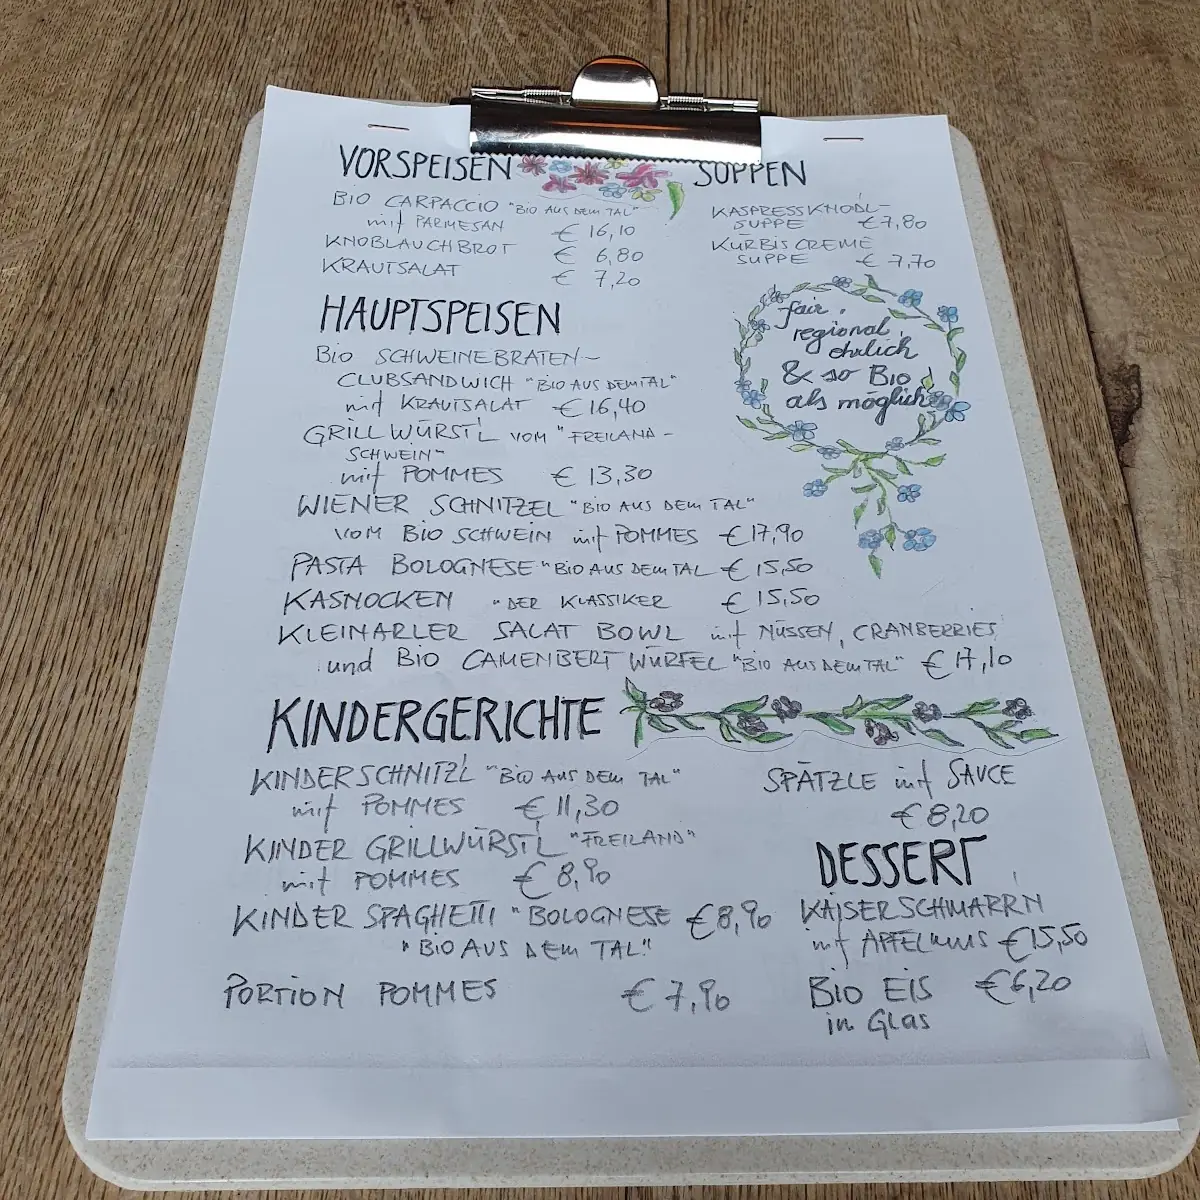 VORSPEISEN
BIO CARPACCIO "BIO AUS DEM TAL"
mit PARMESAN € 16,10
KNOBLAUCHBROT € 6,80
KRAUTSALAT € 7,20
SUPPEN
KASPRESSKNÖDL-
SUPPE € 7,80
KÜRBISCREME
SUPPE € 7,70
fair,
regional,
ehrlich
& so BIO
als möglich
HAUPTSPEISEN
BIO SCHWEINEBRATEN-
CLUBSANDWICH "BIO AUS DEM TAL"
mit KRAUTSALAT € 16,40
GRILLWÜRST'L VOM "FREILAND-
SCHWEIN"
mit POMMES € 13,30
WIENER SCHNITZEL "BIO AUS DEM TAL"
VOM BIO SCHWEIN mit POMMES € 17,90
PASTA BOLOGNESE "BIO AUS DEM TAL € 15,50
KASNOCKEN "DER KLASSIKER € 15,50
KLEINARLER SALAT BOWL mit NÜSSEN, CRANBERRIES
und BIO CAMENBERT WÜRFEL "BIO AUS DEM TAL" € 17,10
KINDERGERICHTE
KINDERSCHNITZ'L "BIO AUS DEM TAL"
mit POMMES € 11,30
KINDER GRILLWÜRST'L "FREILAND"
mit POMMES € 8,90
KINDER SPAGHETTI "BOLOGNESE € 8,90
"BIO AUS DEM TAL"
PORTION POMMES € 7,90
SPÄTZLE mit SAUCE
€ 8,20
DESSERT
KAISERSCHMARRN
mit APFELMUS € 15,50
BIO EIS € 6,20
in Glas